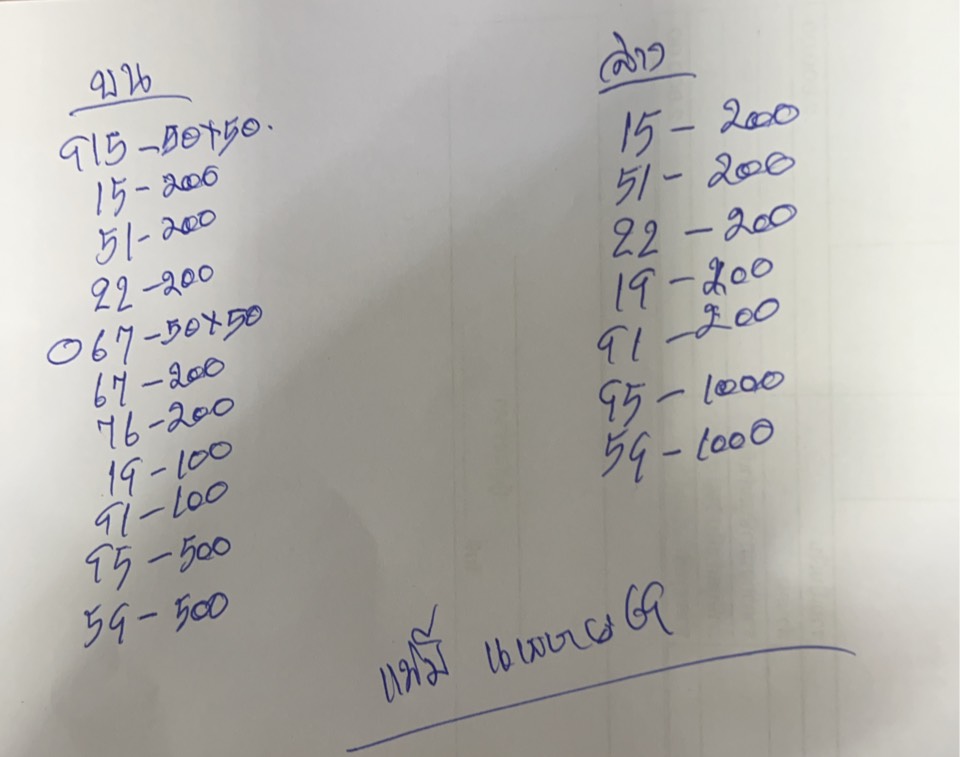 บน
915-50+50.
15-200
51-200
22-200
067-50x50
67-200
76-200
19-100
91-100
95-500
59-500
ล่าง
15-200
51-200
22-200
19-200
91-200
95-1000
59-1000